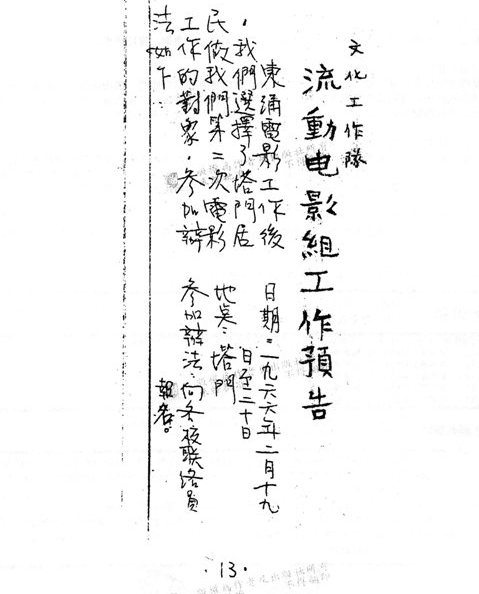 文化工作隊
流動电影組工作預告
東涌電影工作後
，我們選擇了塔門居
民做我們第二次電影
工作的對象，參加辦
法如下：
日期：一九六六年二月十九
日至二十日
地点：塔門
參加辦法：向各校联络員
報名。
·13·